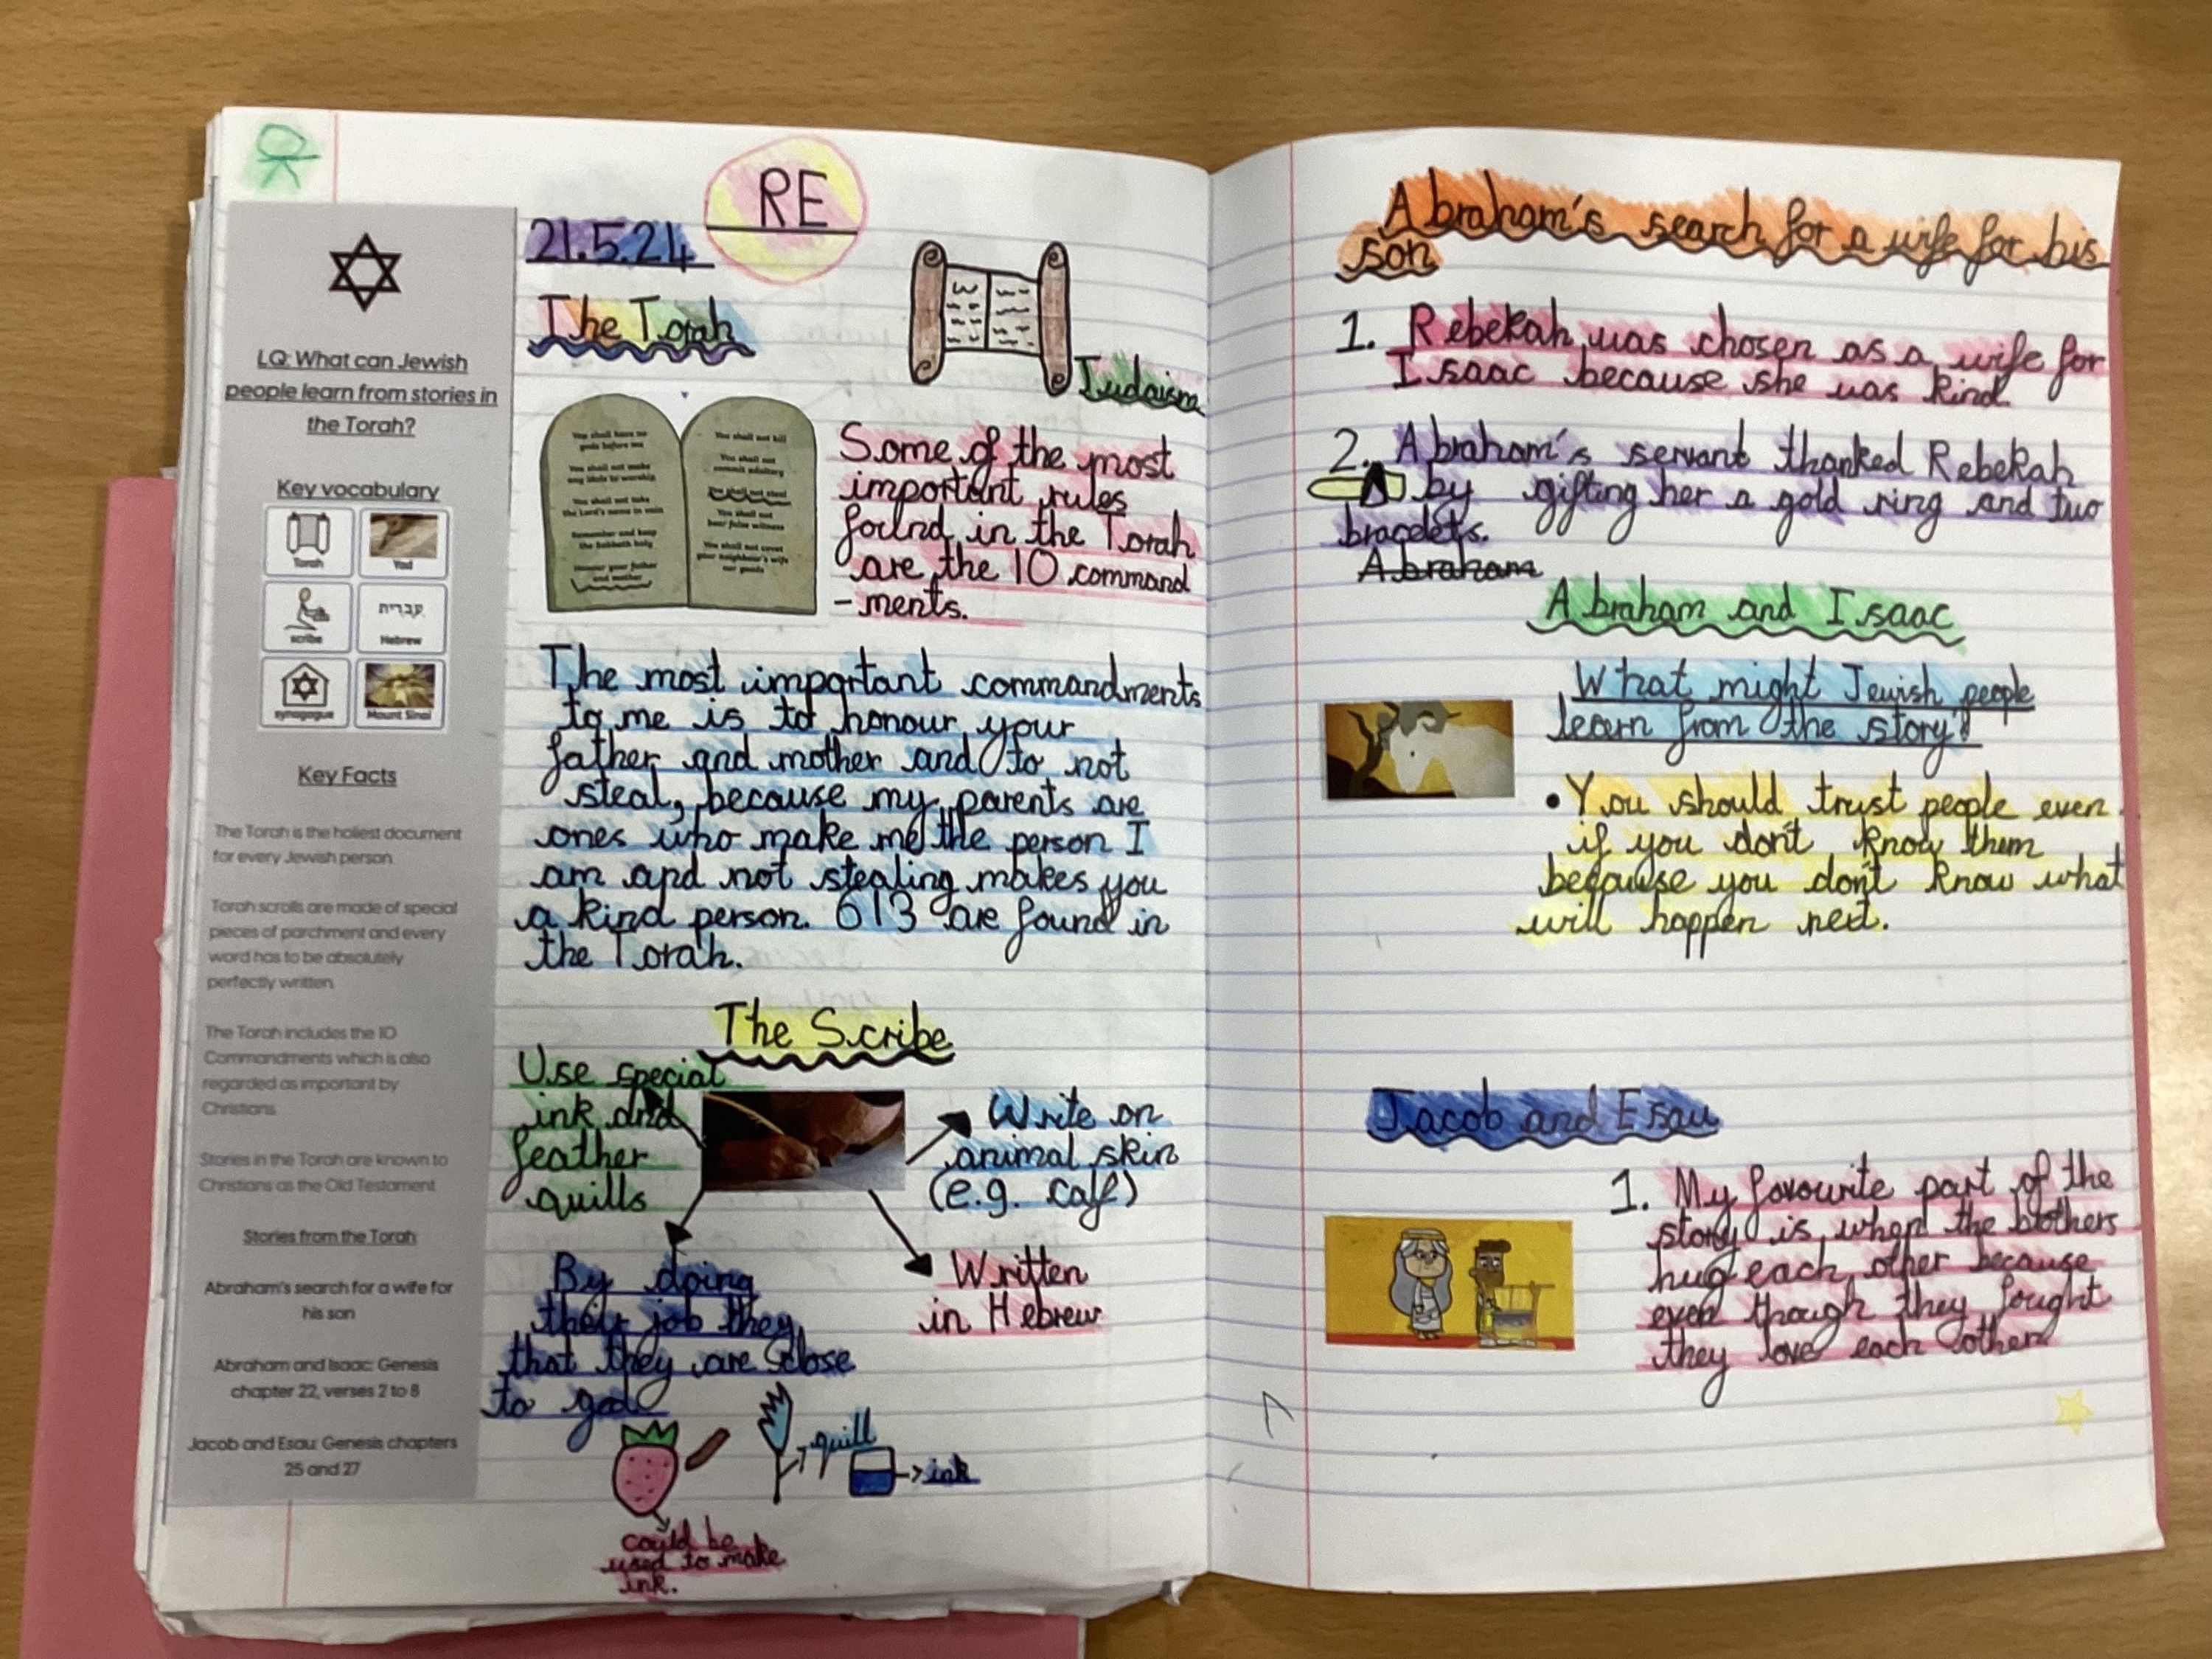 RE
21.5.24
The Torah
Judaism
LQ: What can Jewish
people learn from stories in
the Torah?
Key vocabulary
Torah
Yad
scribe
עברית
Hebrew
synagogue
Mount Sinai
Key Facts
The Torah is the holiest document
for every Jewish person
Torah scrolls are made of special
pieces of parchment and every
word has to be absolutely
perfectly written
The Torah includes the 10
Commandments which is also
regarded as important by
Christians
Stories in the Torah are known to
Christians as the Old Testament
Stories from the Torah
Abraham's search for a wife for
his son
Abraham and Isaac: Genesis
chapter 22, verses 2 to 8
Jacob and Esau: Genesis chapters
25 and 27
You shall have no
gods before me
You shall not make
any idols to worship
You shall not take
the Lord's name in vain
Remember and keep
the Sabbath holy
Honour your father
and mother
You shall not kill
You shall not
commit adultery
You shall not steal
You shall not
bear false witness
You shall not covet
your neighbour's wife
nor goods
Some of the most
important rules
found in the Torah
are the 10 command
-ments.
The most important commandments
to me is to honour your
father and mother and to not
steal, because my parents are
ones who make me the person I
am and not stealing makes you
a kind person. 613 are found in
the Torah.
The Scribe
Use special
ink and
feather
quills
Write on
animal skin
(e.g. calf)
By doing
their job they
that they are close
to god
Written
in Hebrew
quill
ink
could be
used to make
ink.
Abraham's search for a wife for his
son
1. Rebekah was chosen as a wife for
Isaac because she was kind.
2. Abraham's servant thanked Rebekah
by gifting her a gold ring and two
bracelets.
Abraham
Abraham and Isaac
What might Jewish people
learn from the story?
• You should trust people even
if you don't know them
because you don't know what
will happen next.
Jacob and Esau
1. My favourite part of the
story is when the brothers
hug each other because
even though they fought
they love each other